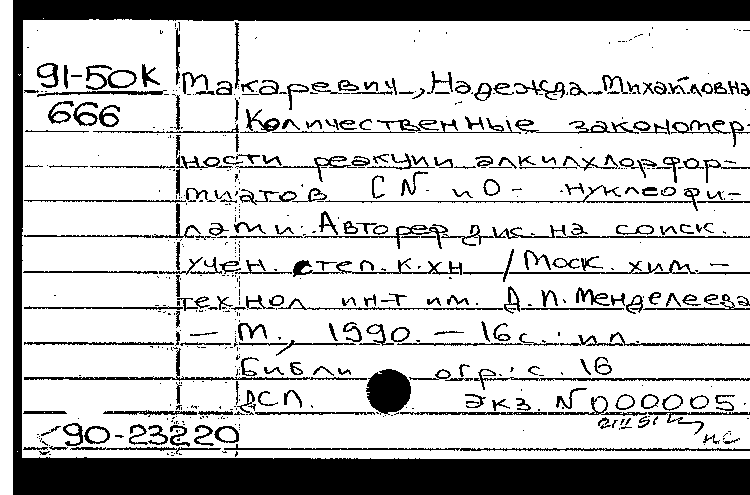 91-50К Макаревич, Надежда Михайловна
666 Количественные закономер-
ности реакции алкилхлорфор-
миатов С N- и О- нуклеофи-
лами: Автореф дис. на соиск.
учен. степ. к.хн / Моск. хим. -
технол ин-т им. Д.И. Менделеева
- М., 1990. - 16 с. : ил.
Библи огр.: с. 16
ДСП. Экз. N 000005.
нс
90-23220